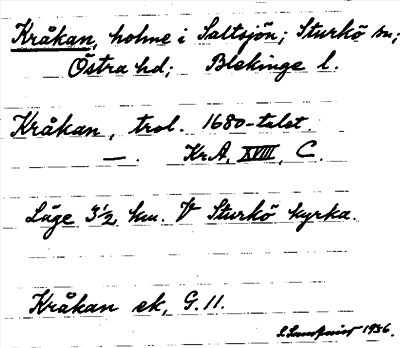 Kråkan, holme i Saltsjön; Sturkö sn;
Östra hd; Blekinge l.
Kråkan, trol. 1680-talet.
—. Kr.A, XVIII, C.
Läge 3½ km. V Sturkö kyrka.
Kråkan ek, G. 11.
1936.